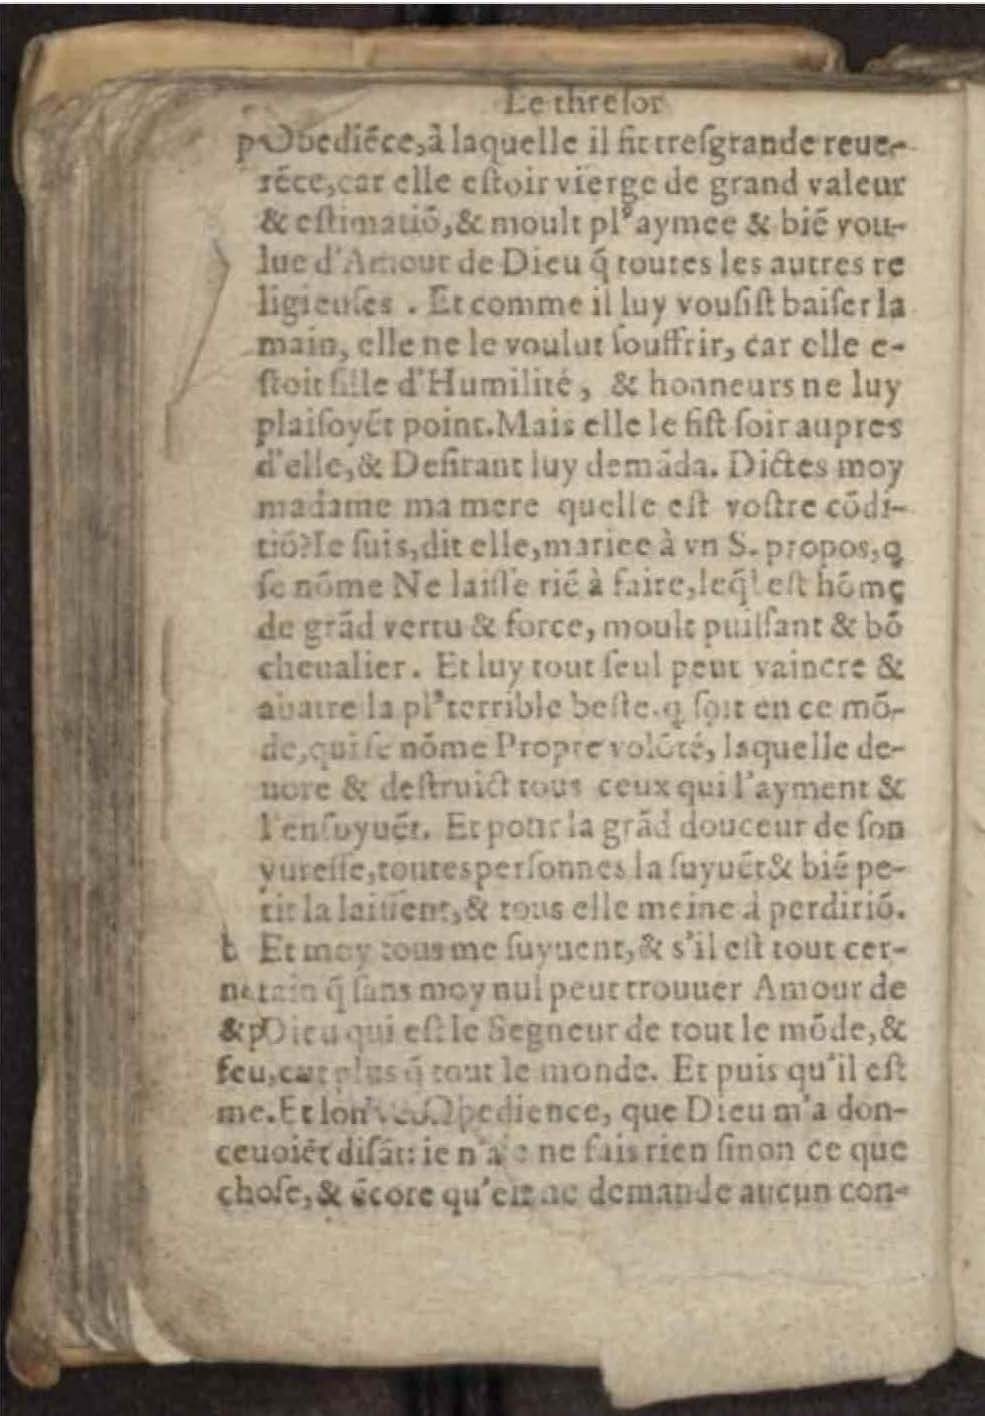 Le thresor
Obediẽce, à laquelle il fit tresgrande reue-
rẽce, car elle estoit vierge de grand valeur
& estimatiõ, & moult plꝰ aymee & biẽ vou-
lue d'Amour de Dieu q̃ toutes les autres re
ligieuses . Et comme il luy vousist baiser la
main, elle ne le voulut souffrir, car elle e-
stoit fille d'Humilité, & honneurs ne luy
plaisoyẽt point. Mais elle le fist soir aupres
d'elle, & Desirant luy demãda. Dictes moy
madame ma mere quelle est vostre cõdi-
tiõ? Ie suis, dit elle, mariee à vn S. propos, q
se nõme Ne laisse riẽ à faire, leq̃l est hõme
de grãd vertu & force, moult puissant & bõ
cheualier. Et luy tout seul peut vaincre &
abatre la plꝰ terrible beste, q soit en ce mõ-
de, qui se nõme Propre volõté, laquelle de-
uore & destruict tous ceux qui l'ayment &
l'ensuyuẽt. Et pour la grãd douceur de son
yuresse, toutes personnes la suyuẽt & biẽ pe-
tit la laissent, & tous elle meine à perditiõ.
Et moy tous me suyuent, & s'il est tout cer-
tain q̃ sans moy nul peut trouuer Amour de
& Dieu qui est le Segneur de tout le mõde, &
feu, car plus q̃ tout le monde. Et puis qu'il est
me. Et lon Obedience, que Dieu m'a don-
ceuoiẽt disãt: ie n'a ne fais rien sinon ce que
chose, & ẽcore qu'en ne demande aucun con-